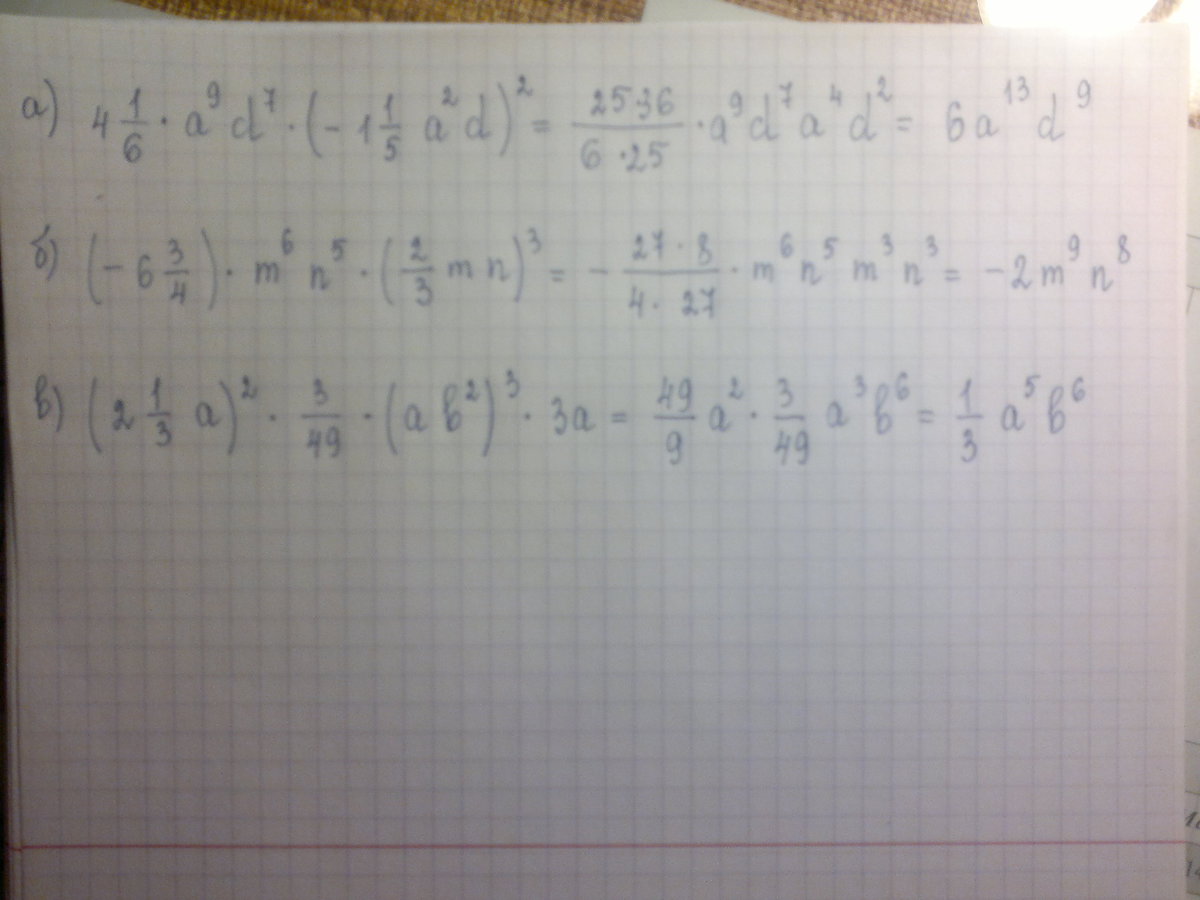 а) 4 1/6 · a⁹ d⁷ · (- 1 1/5 a² d)² = 25·36/6·25 · a⁹ d⁷ a⁴ d² = 6a¹³ d⁹
б) (- 6 3/4) · m⁶ n⁵ · (2/3 m n)³ = - 27·8/4·27 · m⁶ n⁵ m³ n³ = -2m⁹ n⁸
в) (2 1/3 a)² · 3/49 · (a b²)³ · 3a = 49/9 a² · 3/49 a³ b⁶ = 1/3 a⁵ b⁶